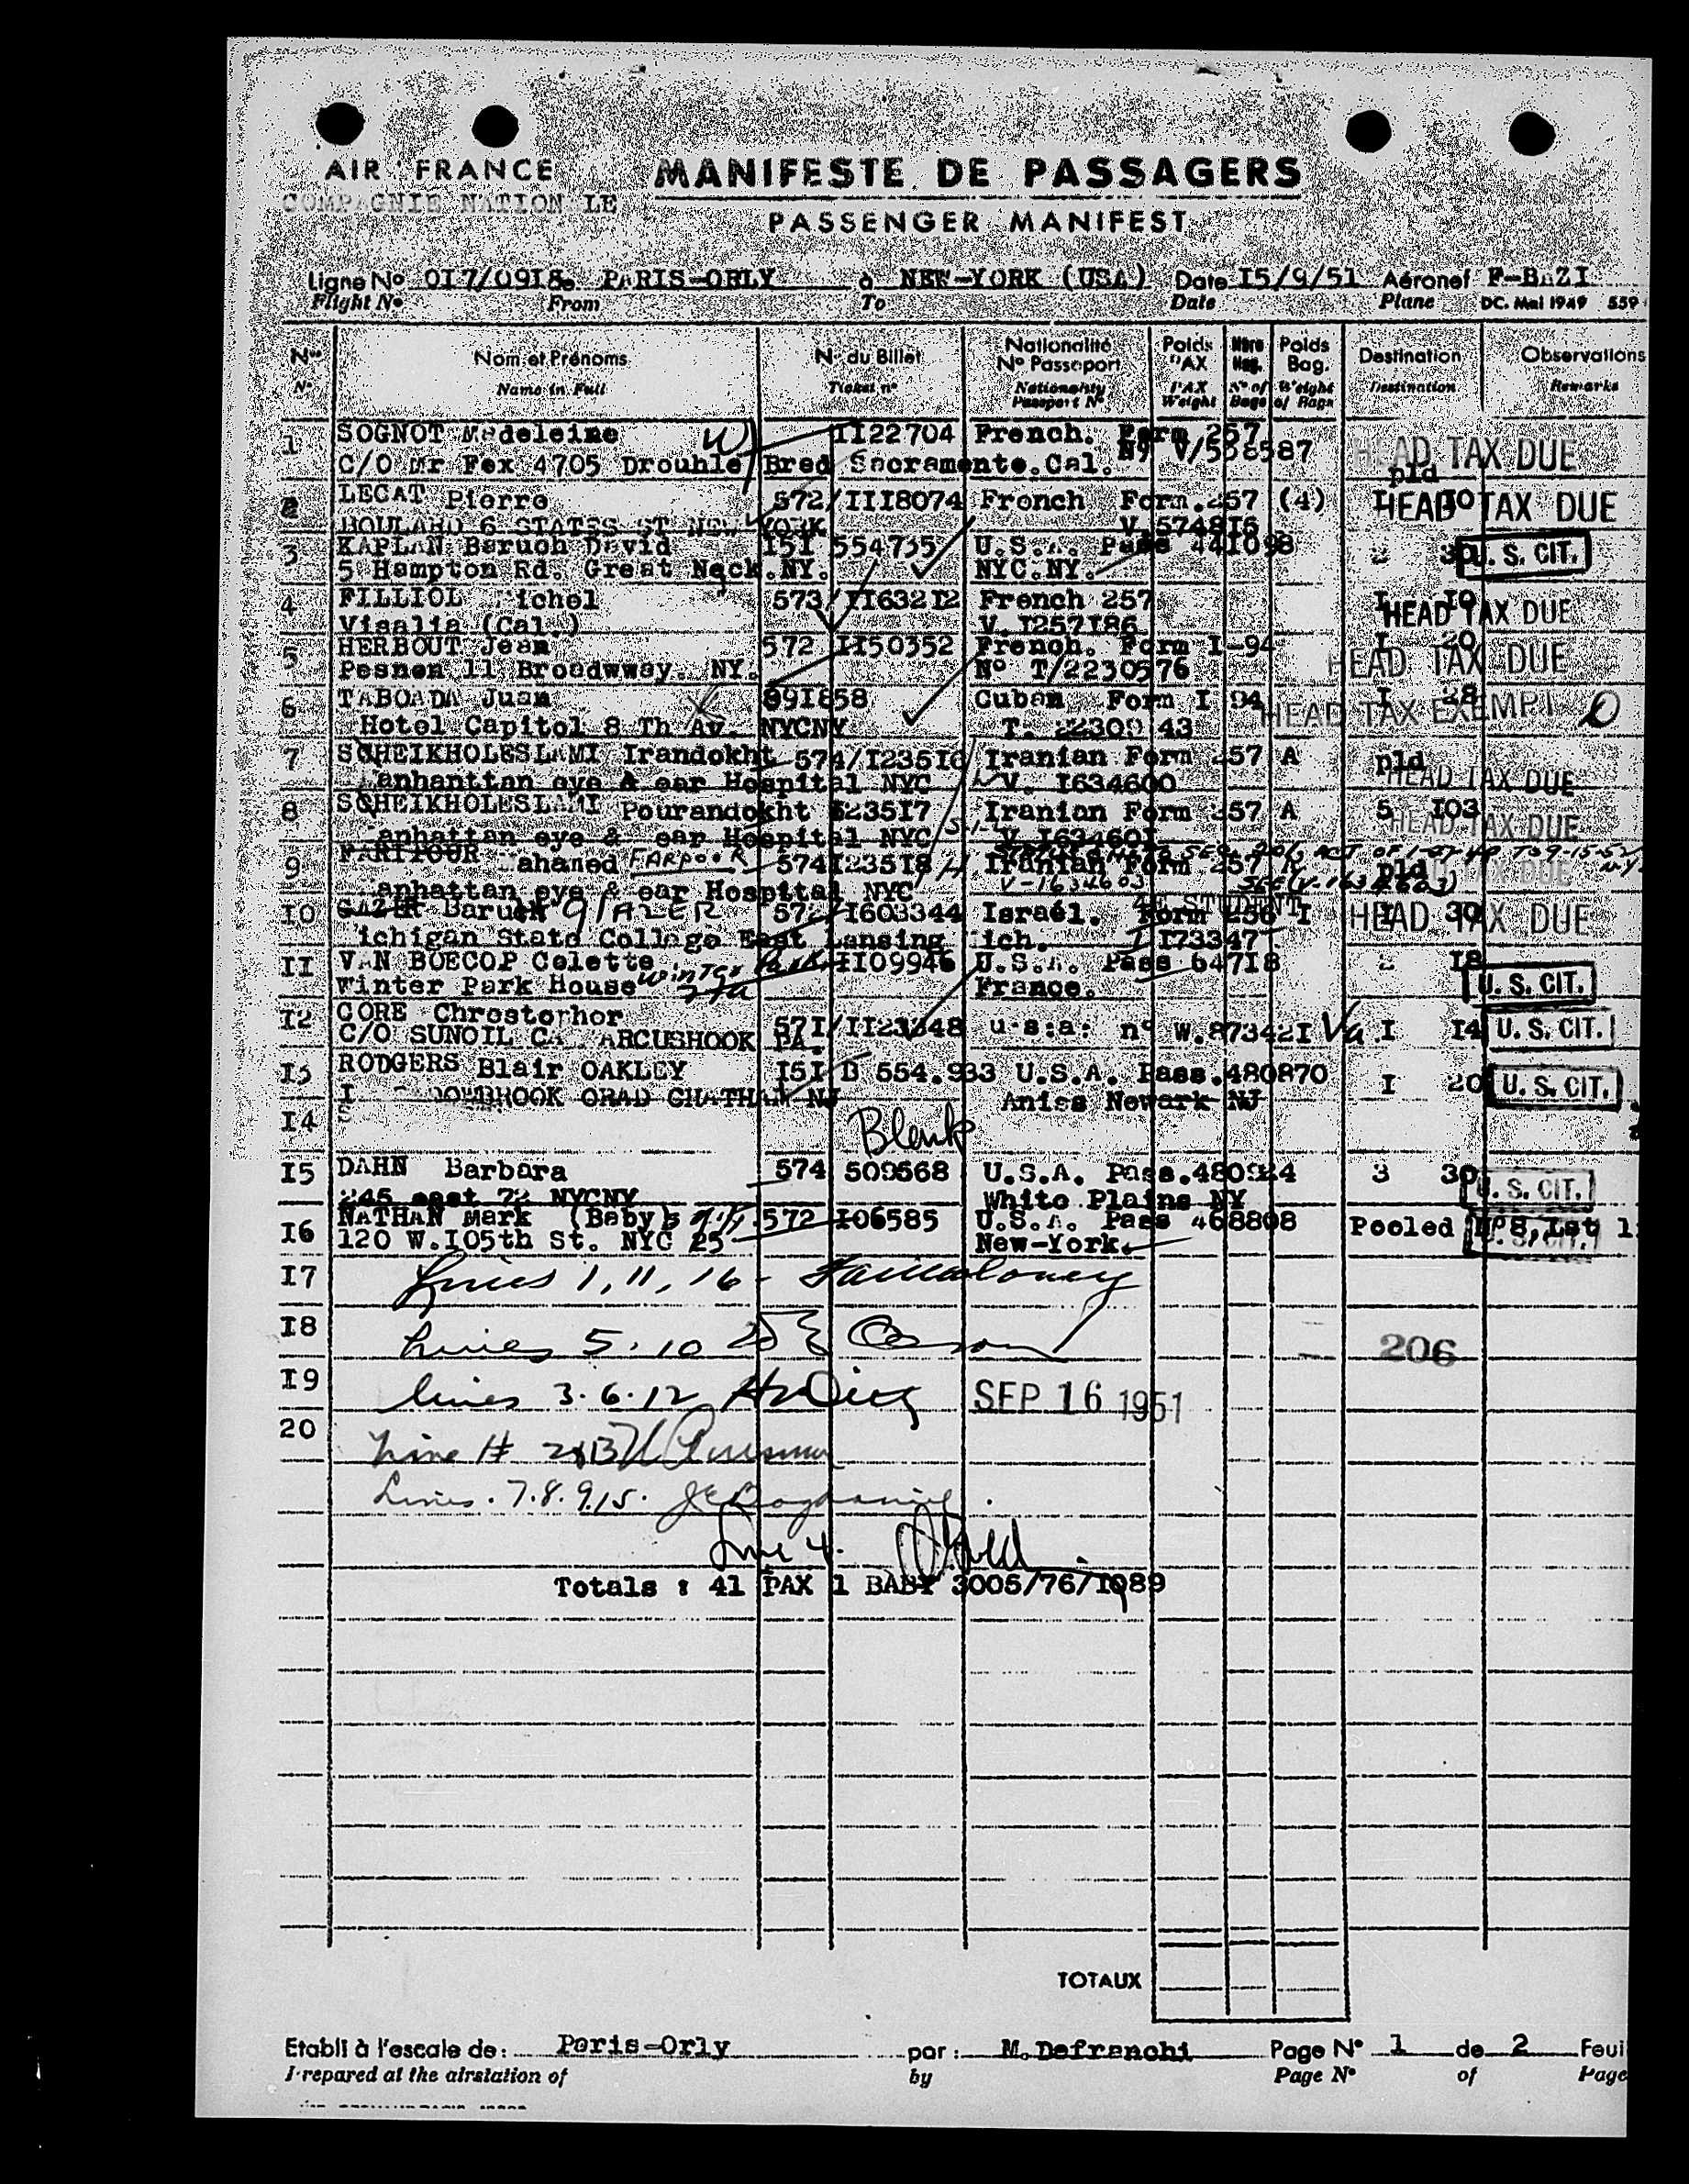 AIR FRANCE
MANIFESTE DE PASSAGERS
COMPAGNIE NATION LE
PASSENGER MANIFEST
Ligne No 017/0918 PARIS-ORLY à NEW-YORK (USA) Date I5/9/51 Aéronef F-BAZI
Flight No From To Date Plane DC. Mai 1949 559
Nom et Prénoms N. du Billet Nationalité Poids Poids Destination Observations
No Passeport PAX Bag.
Name in Full Ticket no Nationality PAX No of Weight Destination Remarks
Passport No Weight Bags of Bags
1 SOGNOT Madeleine W II22704 French. Form 257 HEAD TAX DUE
C/O Mr Fox 4705 Drouhle Bred Sacramento.Cal. No V/
pld
2 LECAT Pierre 572/III8074 French Form.257 (4) I IO HEAD TAX DUE
BOULARD 6 STATES ST NEW YORK V 5748I6
3 KAPLAN Baruch David I5I 554735 U.S.A. Pass 44I098 3 30 U. S. CIT.
5 Hampton Rd. Great Neck.NY. NYC.NY.
4 FILLIOL Michel 573/II632I2 French 257 HEAD TAX DUE
Visalia (Cal.) V I257I86
5 HERBOUT Jean 572 II50352 French. Form I-94 I 20 HEAD TAX DUE
Pesnen 11 Broadwway. NY. No T/2230576
6 TABOADA Juan 89I858 Cuban Form I 94 I 28 HEAD TAX EXEMPT
Hotel Capitol 8 Th Av. NYCNY
7 SCHEIKHOLESLAMI Irandokht 574/I235I6 Iranian Form 257 A pld HEAD TAX DUE
anhanttan eye & ear Hospital NYC V. I634600
8 SCHEIKHOLESLAMI Pourandokht I235I7 Iranian Form 257 A 5 I03 HEAD TAX DUE
anhattan eye & ear Hospital NYC V I63460I
9 ahaned FARPOOR 574 I235I8 Iranian Form 257 pld TAX DUE
anhattan eye & ear Hospital NYC V-1634603
4E STUDENT
IO Baruch GLAZER I603344 Israél. Form 256 I I 30 HEAD TAX DUE
ichigan State College East Lansing ich. I I73347
II VAN BOECOP Colette II09946 U.S.A. Pass 647I8 I8 U. S. CIT.
Winter Park House Winter Park Fla France.
I2 CORE Chrostorhor 57I/II23348 u.s.a. no W.87342I Va I I4 U. S. CIT.
C/O SUNOIL CA ARCUSHOOK PA.
I3 RODGERS Blair OAKLEY I5I B 554.933 U.S.A. Pass.480870 I 20 U. S. CIT.
OWBROOK ORAD CHATHAM NJ Aniss Newark NJ
I4 S
Blank
I5 DAHN Barbara 574 509568 U.S.A. Pass.480924 3 30 U. S. CIT.
245 east 72 NYCNY White Plains NY
I6 NATHAN Mark (Baby) 572 I06585 U.S.A. Pass 468808 Pooled
120 W.I05th St. NYC 25 New-York.
I7 Lines 1, 11, 16 -
I8 Lines 5. 10 206
I9 lines 3.6.12 SEP 16 1951
20 Line #
Lines. 7.8.9.15.
Line 4.
Totals : 41 PAX 1 BABY 3005/76/1089
TOTAUX
Etabli à l'escale de: Paris-Orly par: M. Defranchi Page No 1 de 2 Feui
Prepared at the airstation of by Page No of Page